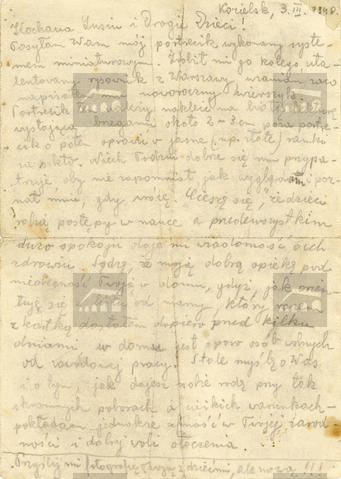 Kozielsk, 3.III.1940.
Kochana Lusiu i Drogie Dzieci!
Posyłam Wam mój portrecik wykonany syste-
mem miniaturowym. Zrobił mi go kolega uta-
lentowany rysownik z Warszawy
noworoczny
Portrecik nakleić na
wystającą brzegami około 2-3cm poza portre-
cik a potem oprawić w jasne (np. złote) ramki
Niech dobrze się mu przypa-
truje, aby nie zapomniał jak wyglądam i poz-
nał mnie, gdy wrócę. Cieszę się, że dzieci
robią postępy w nauce a przedewszystkim
dużo spokoju daje mi wiadomość o ich
zdrowiu. Sądzę, że mają dobrą opiekę pod
nieobecność Twoją w domu, gdyż, jak orien-
tuję się z listu od mamy, który
z kartką dostałem dopiero przed kilku
dniami w domu jest sporo osób wolnych
od zawodowej pracy. Stale myślę o Was
i o tym, jak dajesz sobie radę przy tak
skromnych poborach a ciężkich warunkach-
pokładam jednakże ufność w Twojej zarad-
ności i dobrej woli otoczenia.
Przyślij mi fotografię Twoją z dziećmi, ale nową!!!